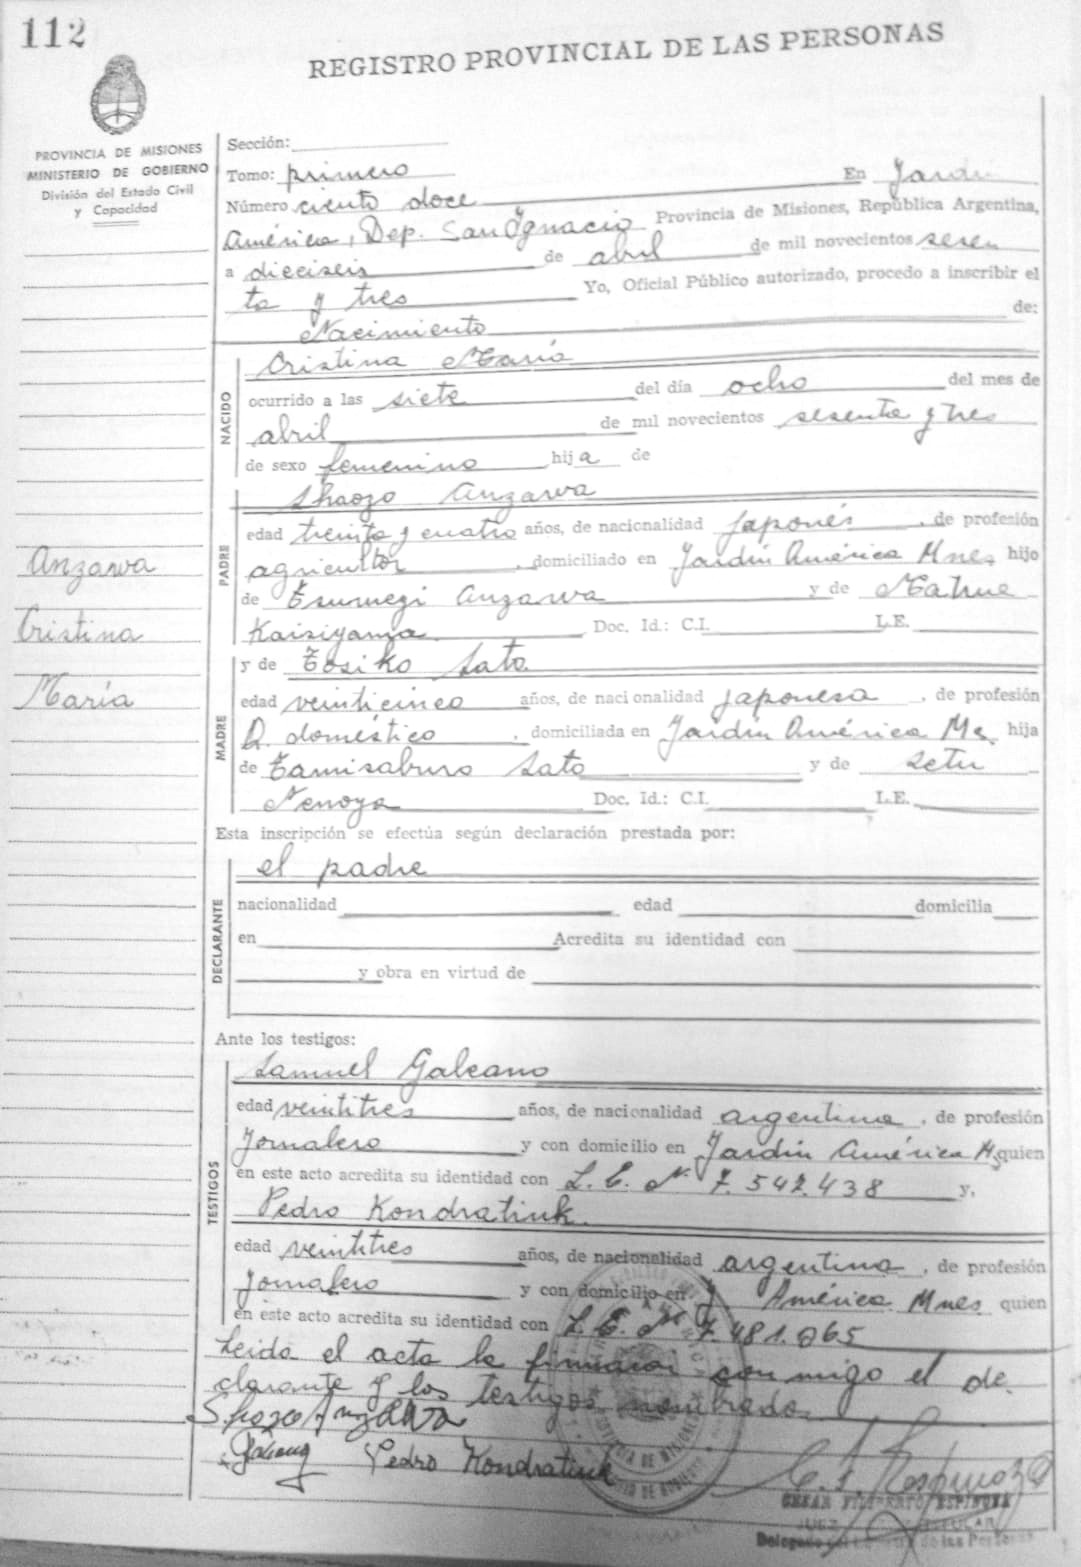 112
REGISTRO PROVINCIAL DE LAS PERSONAS
PROVINCIA DE MISIONES
MINISTERIO DE GOBIERNO
División del Estado Civil
y Capacidad
Sección:
Tomo: primero En Jardín
Número ciento doce
América, Dep. San Ignacio Provincia de Misiones, República Argentina,
a dieciseis de abril de mil novecientos sesen
ta y tres Yo, Oficial Público autorizado, procedo a inscribir el
Nacimiento de:
NACIDO
Cristina María
ocurrido a las siete del día ocho del mes de
abril de mil novecientos sesenta y tres
de sexo femenino hija de
PADRE
Shaozo Anzawa
edad treinta y cuatro años, de nacionalidad japonés, de profesión
agricultor, domiciliado en Jardín América Mnes hijo
de Tsunuegi Anzawa y de
Kaisiyama Doc. Id.: C.I. L.E.
Anzawa
Cristina
María
MADRE
y de Tosiko Sato
edad veinticinco años, de nacionalidad japonesa, de profesión
Q. doméstico, domiciliada en Jardín América Ms. hija
de Tamisaburo Sato y de Setu
Nenoya Doc. Id.: C.I. L.E.
Esta inscripción se efectúa según declaración prestada por:
DECLARANTE
el padre
nacionalidad edad domicilia
en Acredita su identidad con
y obra en virtud de
Ante los testigos:
TESTIGOS
Samuel Galeano
edad veintitres años, de nacionalidad argentina, de profesión
Jornalero y con domicilio en Jardín América M. quien
en este acto acredita su identidad con L. E. Nº 7.542.438 y,
Pedro Kondratiuk.
edad veintitres años, de nacionalidad argentina, de profesión
Jornalero y con domicilio en J. América Mnes quien
en este acto acredita su identidad con L. E. Nº 7.481.065
Leida el acta la firman conmigo el de
clarante y los testigos nombrados.
Shozo Anzawa
Galeano Pedro Kondratiuk
C. F. Espinoza
CESAR FILIBERTO ESPINOZA
JUEZ
Delegado de las Personas